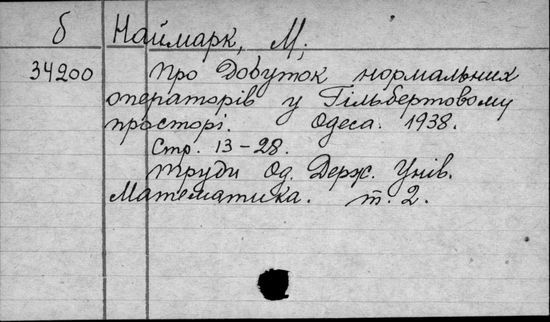 б Наймарк, М;
34200 Про Добуток нормальних
операторів у Гільбертовому
просторі. Одеса. 1938.
Стр. 13-28.
Труди Од. Держ. Унів.
Математика. т. 2.